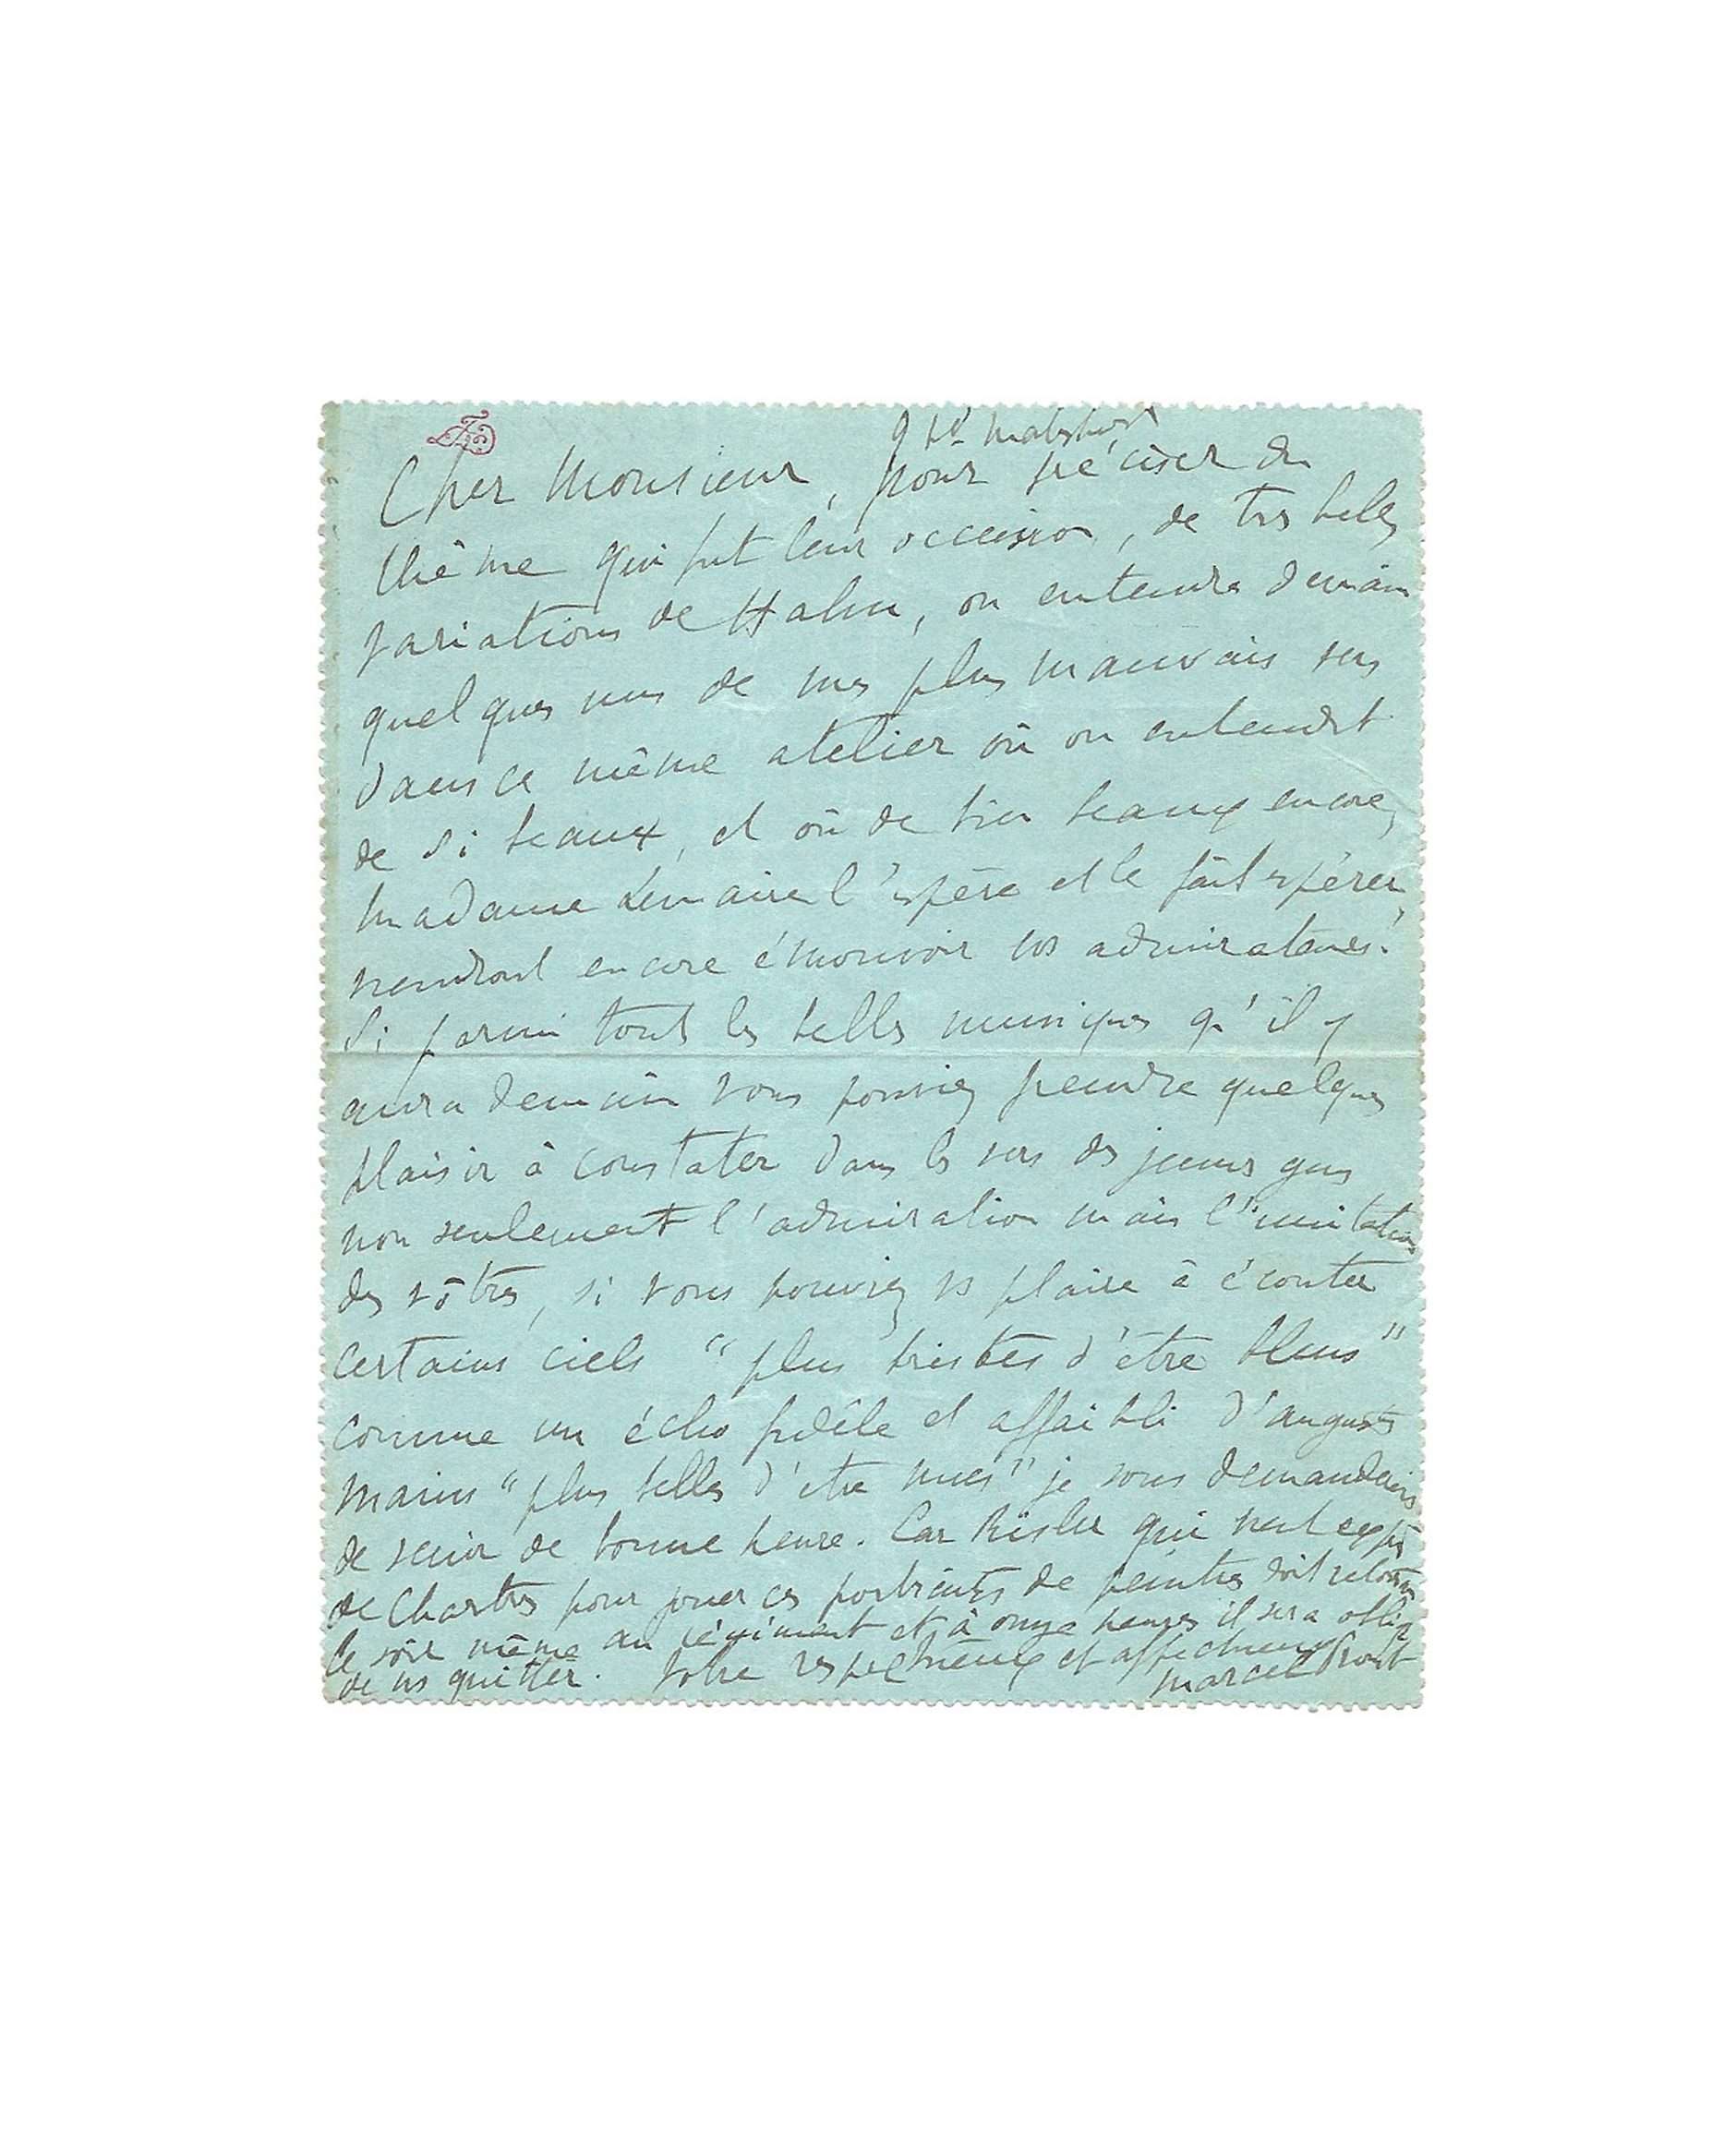 9 bd Malesherbes
Cher Monsieur, pour préciser du
thême qui fut leur occasion, de très belles
variations de Hahn, on entendra demain
quelques uns de mes plus mauvais vers
dans ce même atelier où on entendit
de si beaux, et où de bien beaux encore,
Madame Lemaire l'espère et le fait espérer,
viendront encore émouvoir vos admirateurs.
Si parmi touts les belles musiques qu'il y
aura demain vous pouviez prendre quelques
plaisir à constater dans les vers des jeunes gens
non seulement l'admiration mais l'imitation
des vôtres, si vous pouviez vs plaire à écouter
certains ciels "plus tristes d'être bleus"
comme un écho fidèle et affaibli d'augustes
mains "plus belles d'être nues" je vous demanderais
de venir de bonne heure. Car Risler qui vient exprès
de Chartres pour jouer ces portraits de peintres doit retourner
le soir même au régiment et à onze heures il sera obligé
de ns quitter. Votre respectueux et affectueux
Marcel Proust